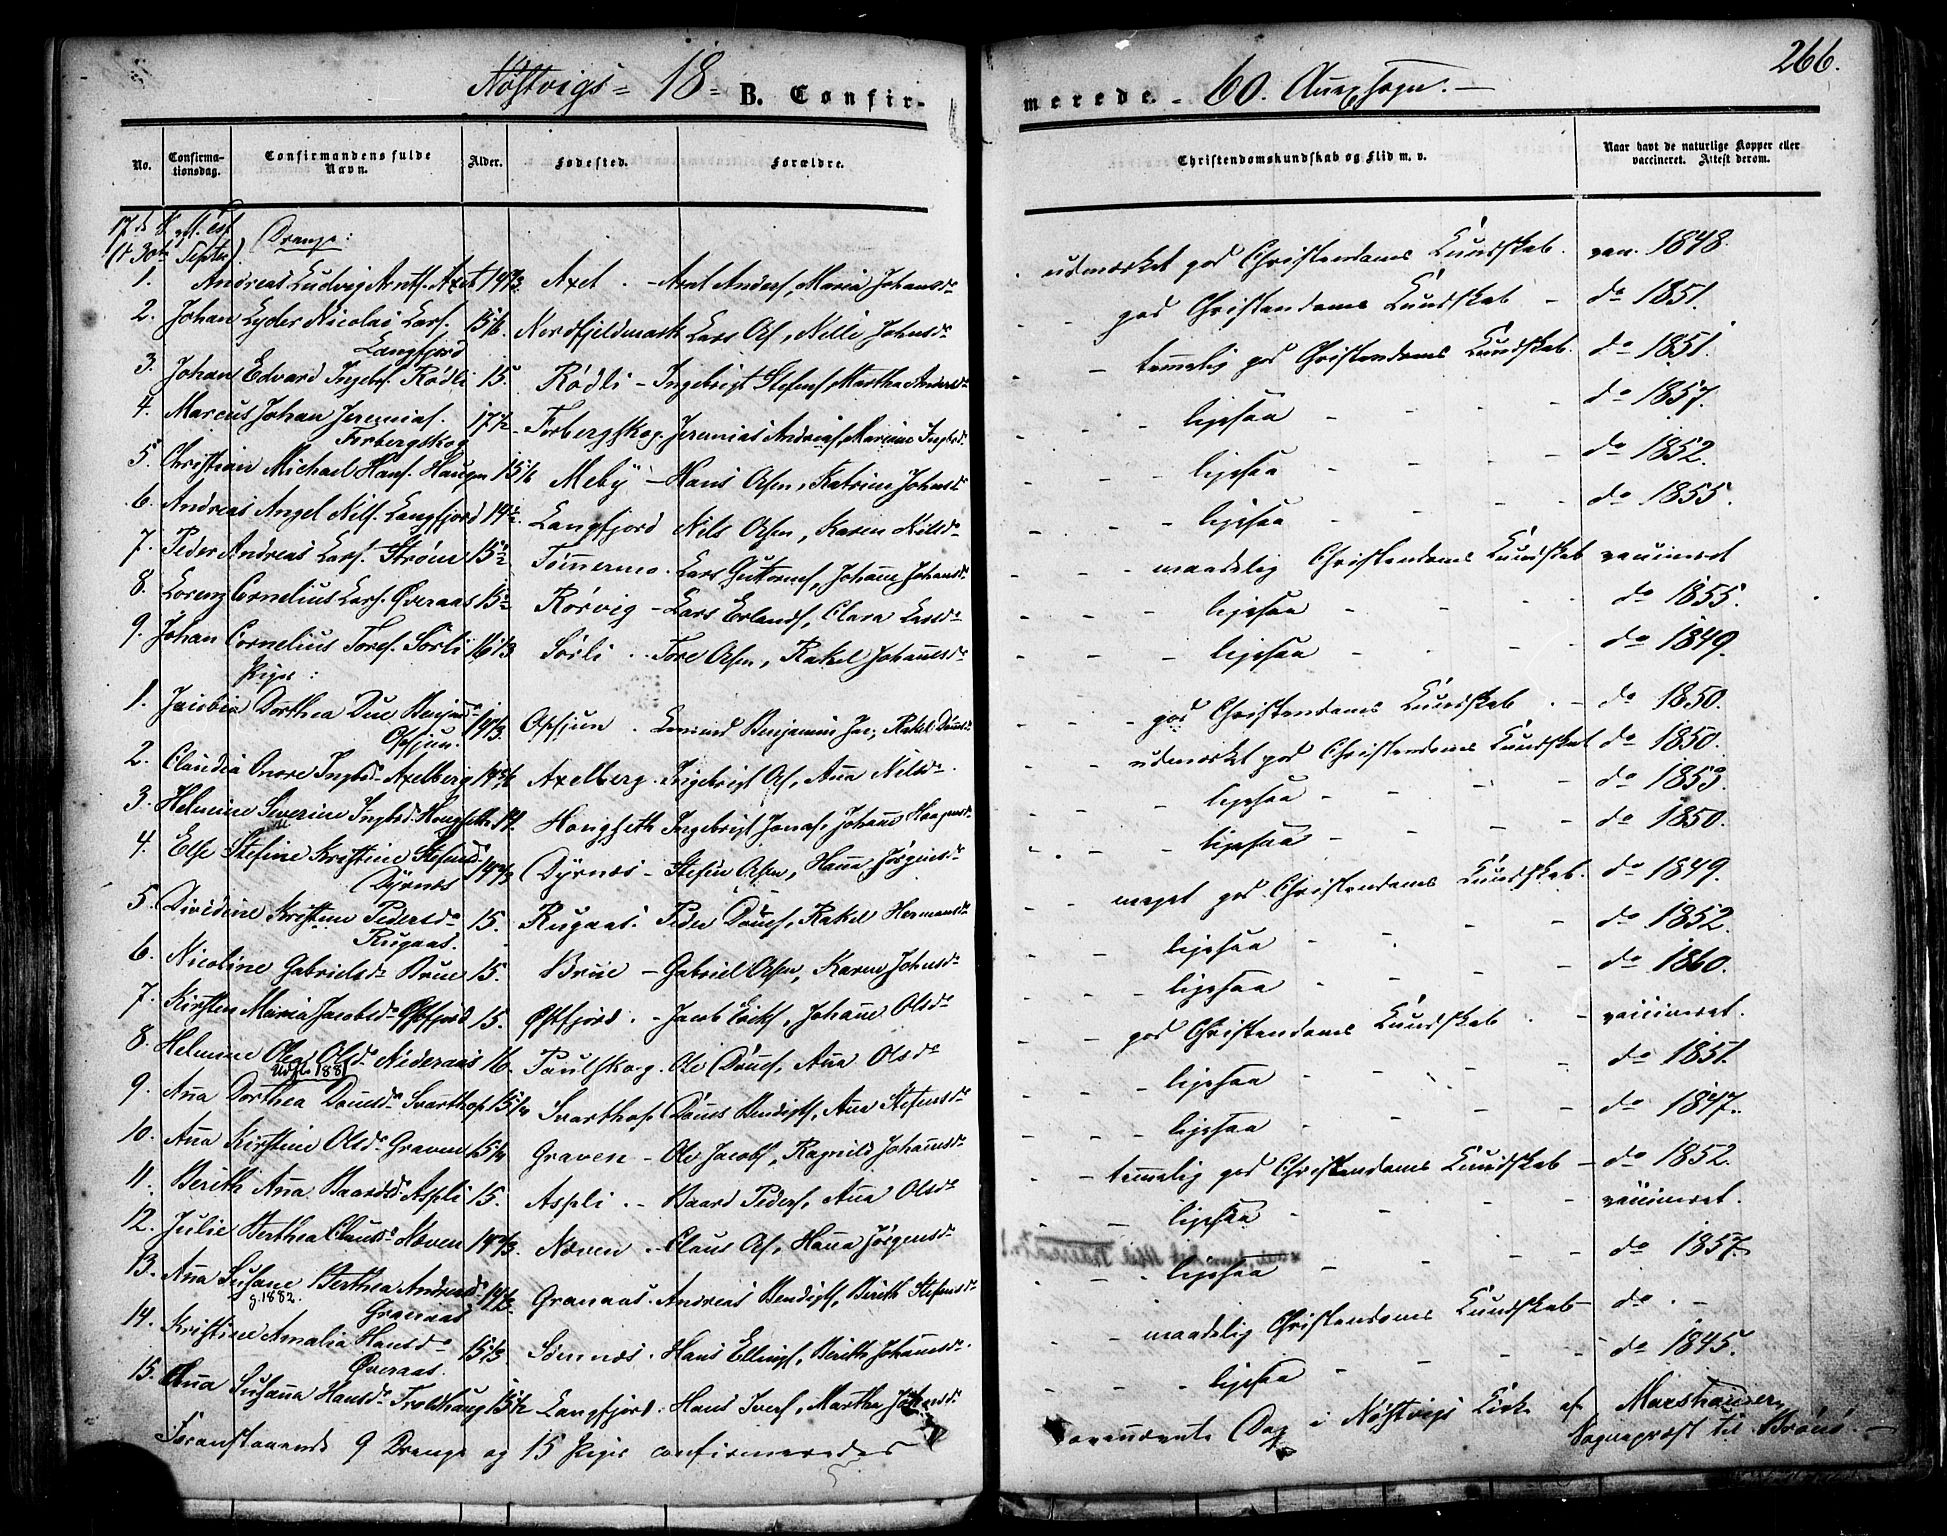 266.
Nøstvigs = 18 = B. Confir-
merede. - 60. Anexsogn. -
No. Confirma-tionsdag. Confirmandens fulde Navn. Alder. Fødested. Forældre.
Christendomskundskab og Flid m. v. Naar havt de naturlige Kopper eller vaccineret. Attest derom.
17de
(d. 30te Septbr.) Drenge:
1. Andreas Ludvig Axel 14 2/3 Axel - Axel Anders, Maria Johansdr
udmærket god Christendoms Kundskab. vac. 1848.
2. Johan Lyder Nicolai Lars. Langfjord 15 1/2 Nordfjeldmark Lars Ols, Nelle Johnsdr
god Christendoms Kundskab - do 1851.
3. Johan Edvard Ingebr. Rödli 15. Rödli - Ingebrigt Stefens, Martha Andersdr
temmelig god Christendoms Kundskab. do 1851.
4. Marcus Johan Jeremias. Forbergskog 17 1/2 Forbergskog. Jeremias Andreas, Marine Ingbrdr
ligesaa - do 1857.
5. Christian Michael Hans. Haugen 15 1/2 Mebÿ - Hans Olsen, Katrine Johnsdr
ligesaa - do 1852.
6. Andreas Angel Nils. Langfjord 14 1/2 Langfjord Nils Olsen, Karen Nilsdr
ligesaa - do 1855.
7. Peder Andreas Lars. Ström 15 1/2 Tømmermo. Lars Guttorms, Johanne Johansdr
maadelig Christendoms Kundskab vaccineret
8. Lorenz Cornelius Lars. Øveraas 15 1/2 Rörvig - Lars Erlands, Clara Larsdr
ligesaa - do 1855.
9. Johan Cornelius Tores. Sörli 16 1/3 Sörli - Tore Olsen, Rakel Johannesdr
ligesaa - do 1849.
Piger:
1. Jacobia Dorthea Due Benjmdr Opsjun. 14 2/3. Opsjun. Benjamin Jac, Rakel
god Christendoms Kundskab. - do 1850.
2. Claudia Onore Ingbrdr Axelberg 14 Axelberg. Ingebrigt Ols, Anna Nilsdr
udmærket god Christendoms Kundskab do 1850.
3. Helmine Severine Ingbrdr Hongseth 14. Hongseth Ingebrigt Jonas, Johanne Haagensdr
ligesaa - do 1853.
4. Else Stefine Kristine Stefensdr Dÿrnæs 14 2/3 Dÿrnæs - Stefen Olsen, Hanna Jørgensdr
ligesaa - do 1850.
5. Kristine Pedersdr Rugaas. 15. Rugaas. Peder Dönnes, Rakel Hermansdr
meget god Christendoms Kundskab. do 1849.
6. Nicoline Gabrielsdr Brue 15. Brue - Gabriel Olsen, Karen Johnsdr
ligesaa - do 1852.
7. Kirsten Maria Jacobsdr Østfjord 15. Østfjord. - Jacob Eriks, Johanne Olsdr
ligesaa - do 1860.
8. Helmine Olea Olsdr Nideraas 16. Paulskog. Ole Dönnes, Anna Olsdr
god Christendoms Kundskab - vaccineret.
Udfl. 1881
9. Anna Dorthea Dönnesdr Svarthop 15 1/4 Svarthop. Dönnes Bendigts, Ane Stefensdr
ligesaa - do 1851.
10. Anna Kirstine Olsdr Graven 15 1/4 Graven - Ole Jacobs, Ragnild Johannesdr
ligesaa - do 1847.
11. Berith Anna Baardsdr Aspli 15. Aspli. - Baard Peders, Anna Olsdr
temmelig god Christendoms Kundskab - do 1852.
12. Julie Berthea Clausdr Næven 14 2/3. Næven. - Claus Ols, Hanna Jørgensdr
ligesaa - vaccineret.
13. Anna Susane Berthea Andreasdr Granaas 14 2/3 Granaas. Andreas Bendigts, Berith Stefensdr
ligesaa - do 1857
g. 1882.
14. Kristine Amalia Hansdr Øveraas. 15 1/3. Sömnæs. Hans Ellings, Berith Johannesdr.
maadelig Christendoms Kundskab - do -
15. Anna Susanna Hansdr Troldhaug 15 1/2 Langfjord. Hans Ivers, Martha Johansdr
ligesaa - do 1845.
Foranstaaende 9 Drenge og 15 Piger confirmeredes
ovennævnte Dag i Nøstvigs Kirke af Marshauser,
Sognepræst til Brönö. -